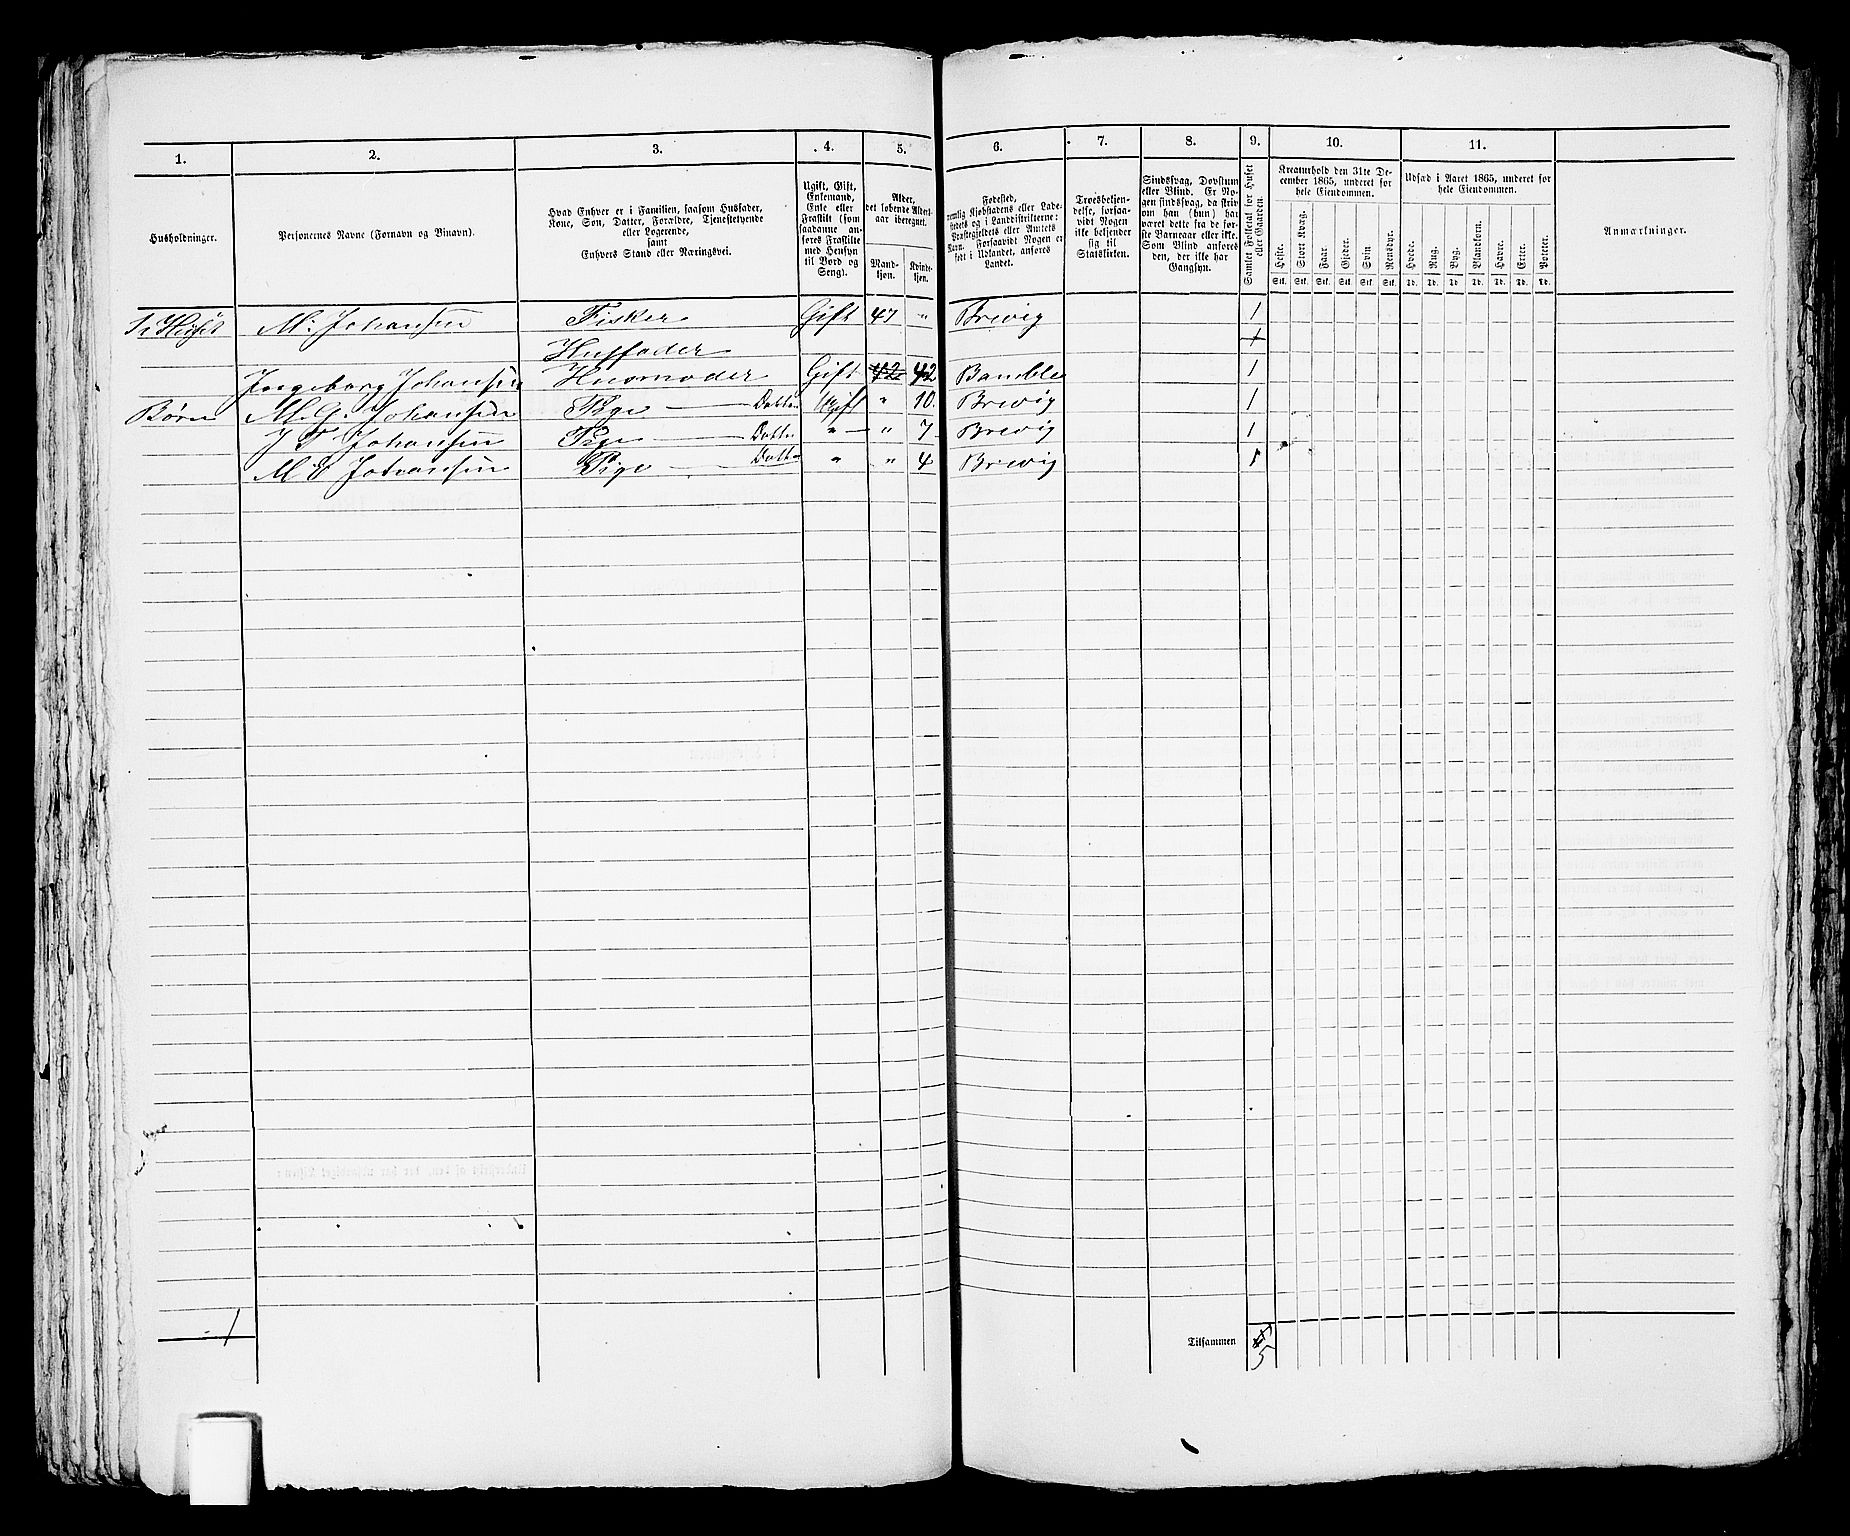 1. 2. 3. 4. 5. 6. 7. 8. 9. 10. 11.
Husholdninger.
Personernes Navne (Fornavn og Binavn).
Hvad Enhver er i Familien, saasom Husfader,
Kone, Søn, Datter, Forældre, Tjenestetyende
eller Logerende,
samt
Enhvers Stand eller Næringsvei.
Ugift, Gift,
Enkemand,
Enke eller
Fraskilt (som
saadanne an-
føres Fraskilte
med Hensyn
til Bord og
Seng).
Alder,
det løbende Alders-
aar iberegnet.
Mand-
kjøn.
Kvinde-
kjøn.
Fødested,
nemlig Kjøbstadens eller Lade-
stedets og i Landdistrikterne:
Præstegjeldets eller Amtets
Navn. Forsaavidt Nogen er
født i Udlandet, anføres
Landet.
Troesbekjen-
delse, forsaa-
vidt Nogen
ikke bekjender
sig til
Statskirken.
Sindssvag, Døvstum
eller Blind. Er No-
gen sindssvag, da skriv
om han (hun) har
været dette fra de før-
ste Barneaar eller ikke.
Som Blind anføres
den, der ikke har
Gangsyn.
Samlet Folketal for Huset
eller Gaarden.
Kreaturhold den 31te De-
cember 1865, underet for
hele Eiendommen.
Heste. Stort Kvæg. Faar. Gjeder. Svin Rensdyr.
Stk. Stk. Stk. Stk. Stk. Stk.
Udsæd i Aaret 1865, underet for
hele Eiendommen.
Hvede. Rug. Byg. Blandkorn. Havre. Erter. Poteter.
Td. Td. Td. Td. Td. Td. Td.
Anmærkninger.
M: Johansen Fisker Gift 47 " Brevig 1
Husfader 1
Ingeborg Johansen Husmoder Gift 42 42 Bamble 1
Børn M. G. Johansen Pige — Datter Ugift " 10. Brevig 1
J T Johansen Pige — Datter " — " 7 Brevig 1
M E Johansen Pige — Datter " " 4 Brevig 1
1
Tilsammen
5